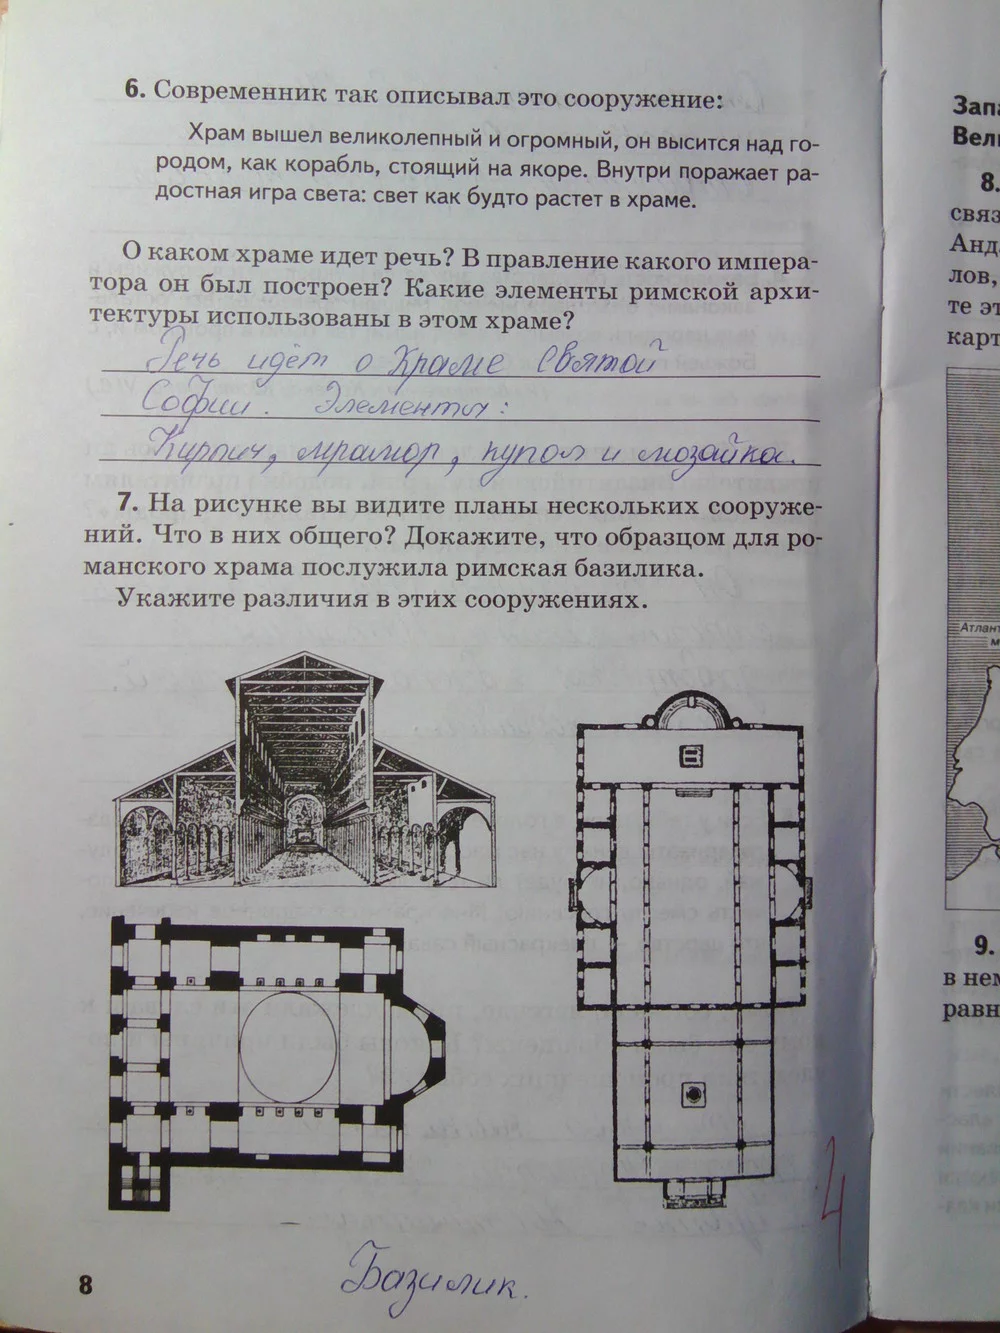 6. Современник так описывал это сооружение:
Храм вышел великолепный и огромный, он высится над го-
родом, как корабль, стоящий на якоре. Внутри поражает ра-
достная игра света: свет как будто растет в храме.
О каком храме идет речь? В правление какого импера-
тора он был построен? Какие элементы римской архи-
тектуры использованы в этом храме?
Речь идёт о Храме Святой
Софии. Элементы:
Кирпич, мрамор, купол и мозайка.
7. На рисунке вы видите планы нескольких сооруже-
ний. Что в них общего? Докажите, что образцом для ро-
манского храма послужила римская базилика.
Укажите различия в этих сооружениях.
8
Базилик.
Запа
Вели
8.
связ
Анд
лов,
те эт
карт
Атлант
м
9.
в нем
равн